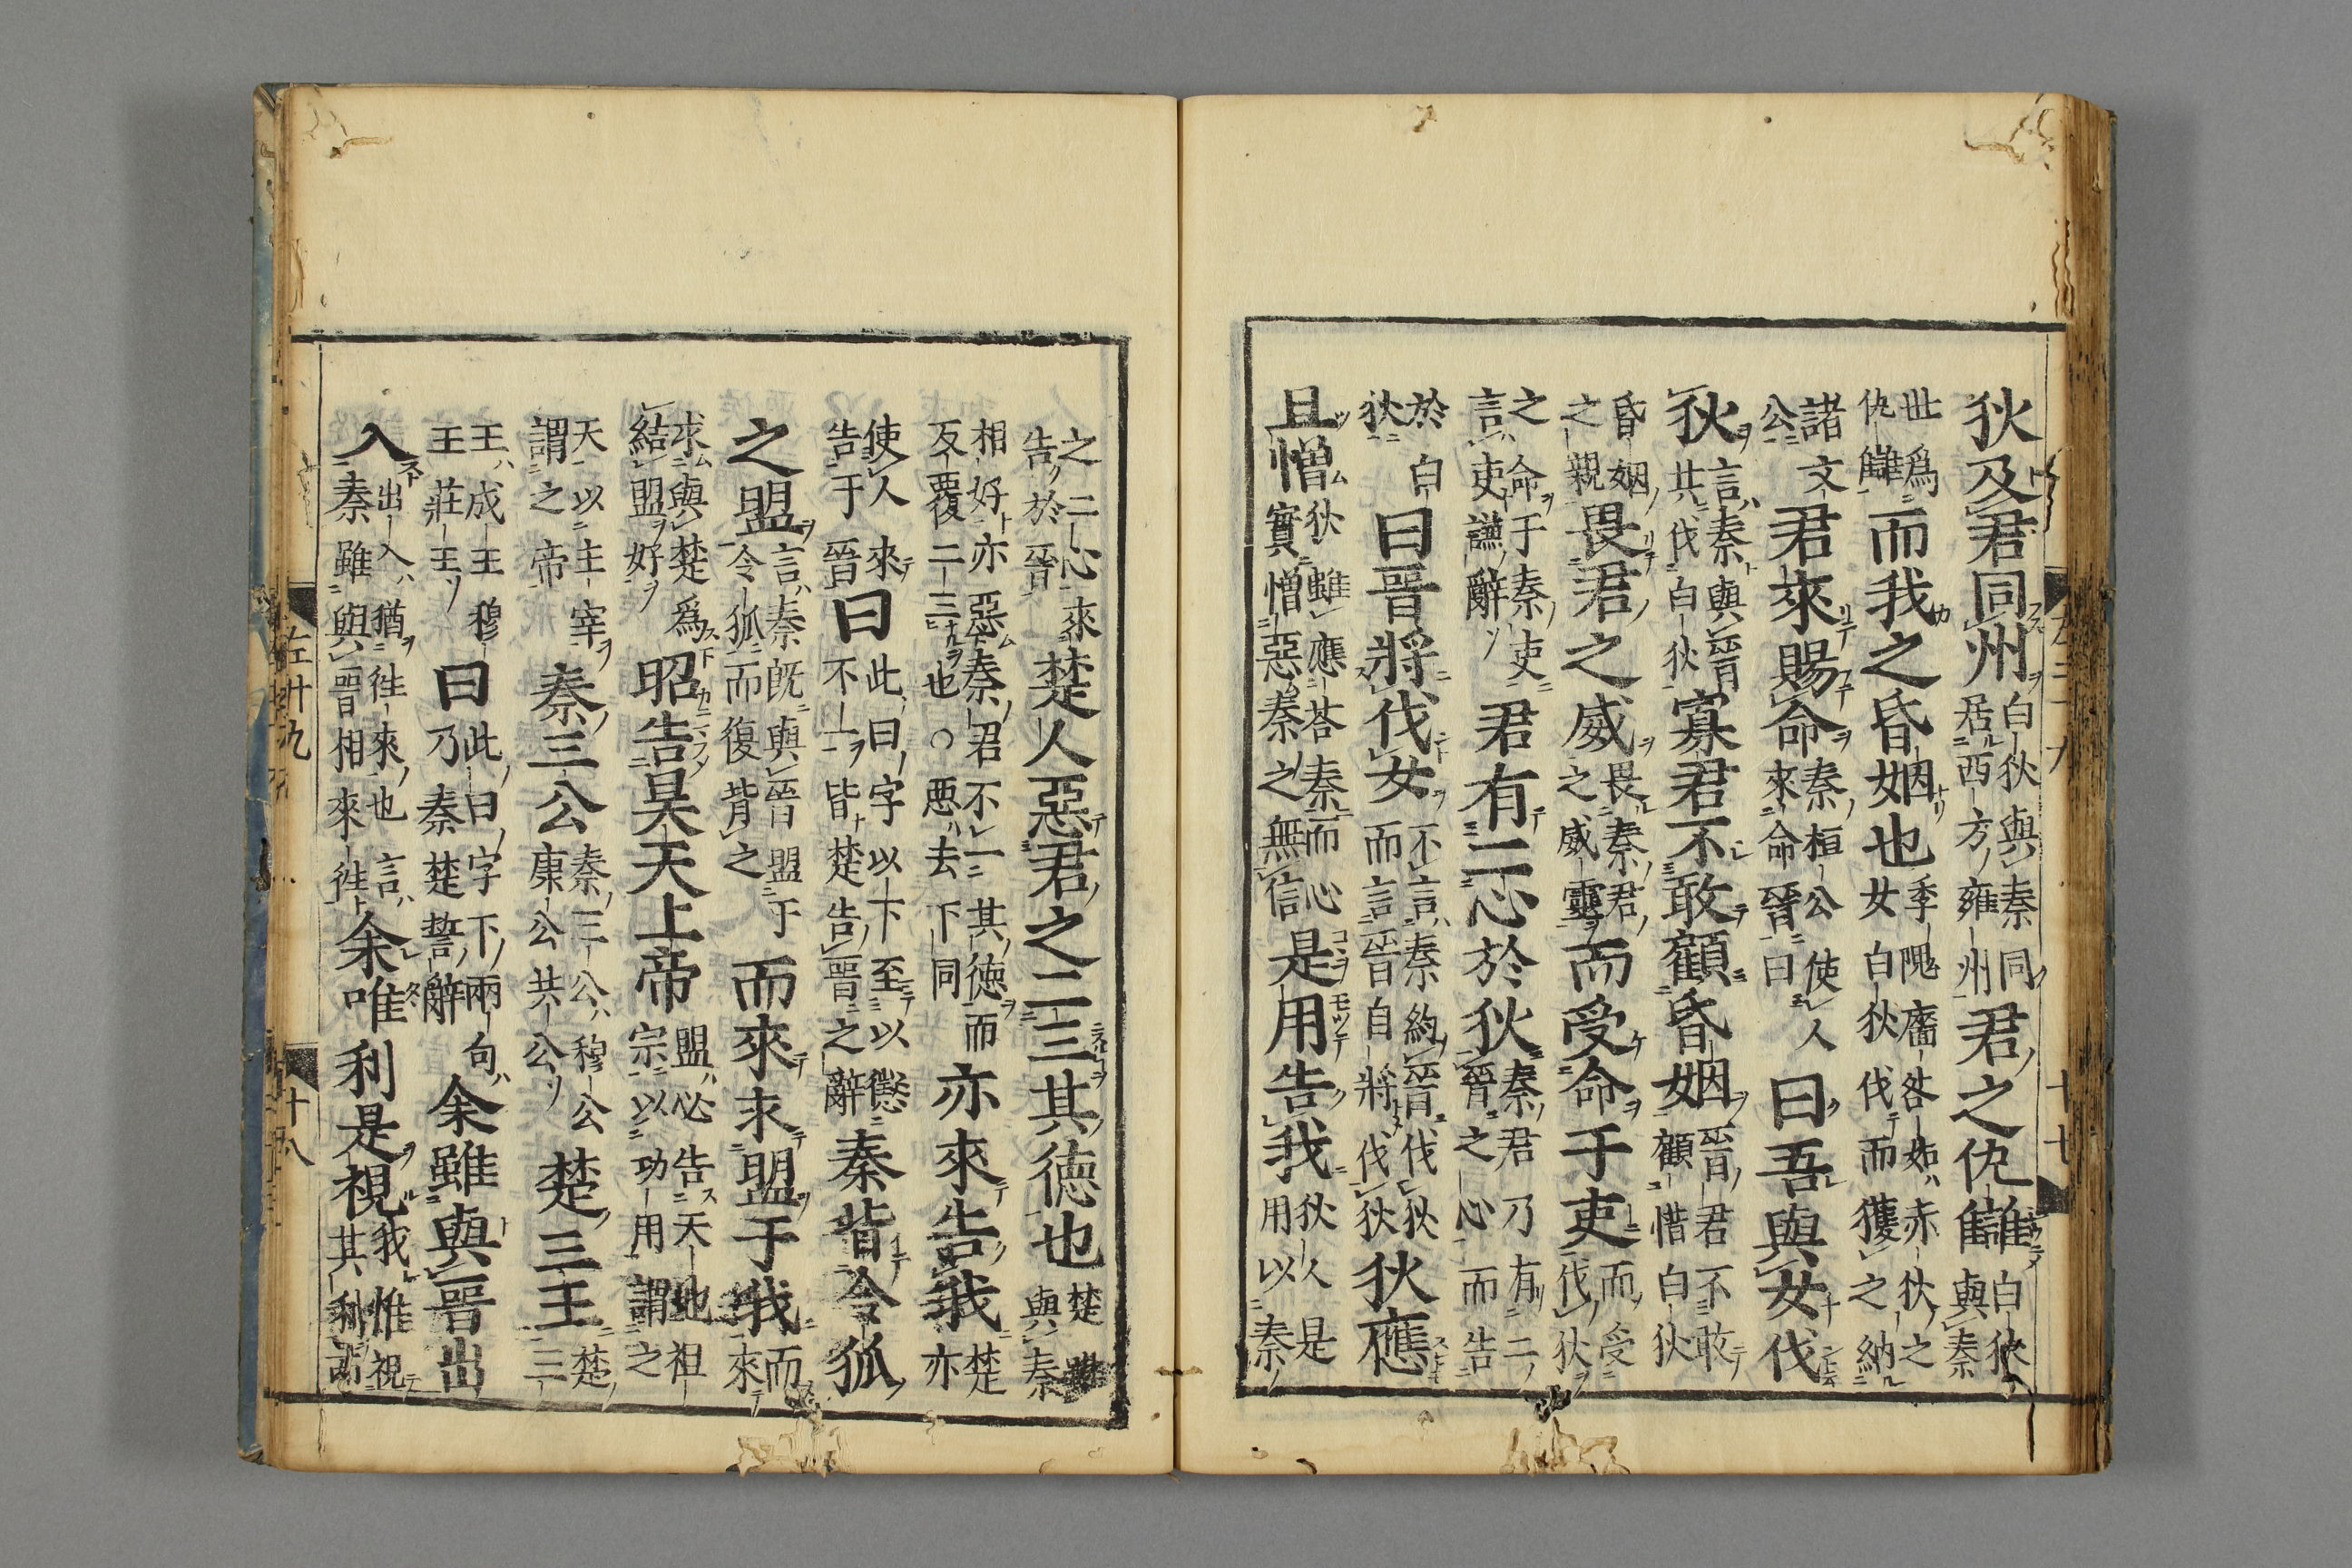 狄及君同州白狄與秦同居西方雍州君之仇讎白狄與秦
世爲仇讎而我之昏姻也季隗廧咎如赤狄之女白狄伐而獲之納
諸文公君來賜命秦桓公使人來命晉曰曰吾與女伐
狄言秦與晉共伐白狄寡君不敢顧昏姻晉君不敢顧惜白狄
昏姻之親畏君之威畏秦君之威靈而受命于吏而受伐狄
之命于秦吏言吏謙辭君有二心於狄秦君乃有二晉之心而告
於白狄曰晉將伐女不言秦約晉伐狄而言晉自將伐狄狄應
且憎狄雖應荅秦而心實憎惡秦之無信是用告我狄人是用以秦
十七
之二心來告於晉楚人惡君之二三其德也楚與秦
相好亦惡秦君不一其德而反覆二三也○惡去下同亦來告我楚亦
使人來告于晉曰此曰字以下至以懲不一皆楚告晉之辭秦背令狐
之盟言秦既與晉盟于令狐而復背之而來求盟于我而來
求與楚爲結盟好昭告昊天上帝盟必告天地祖宗以功用謂之
天以主宰謂之帝秦三公秦三公穆公康公共公楚三王楚三
王成王穆王莊王曰此曰字下兩句乃秦楚誓辭余雖與晉出
入出入猶往來也言秦雖與晉相來往余唯利是視我惟視其利
左十九
十八